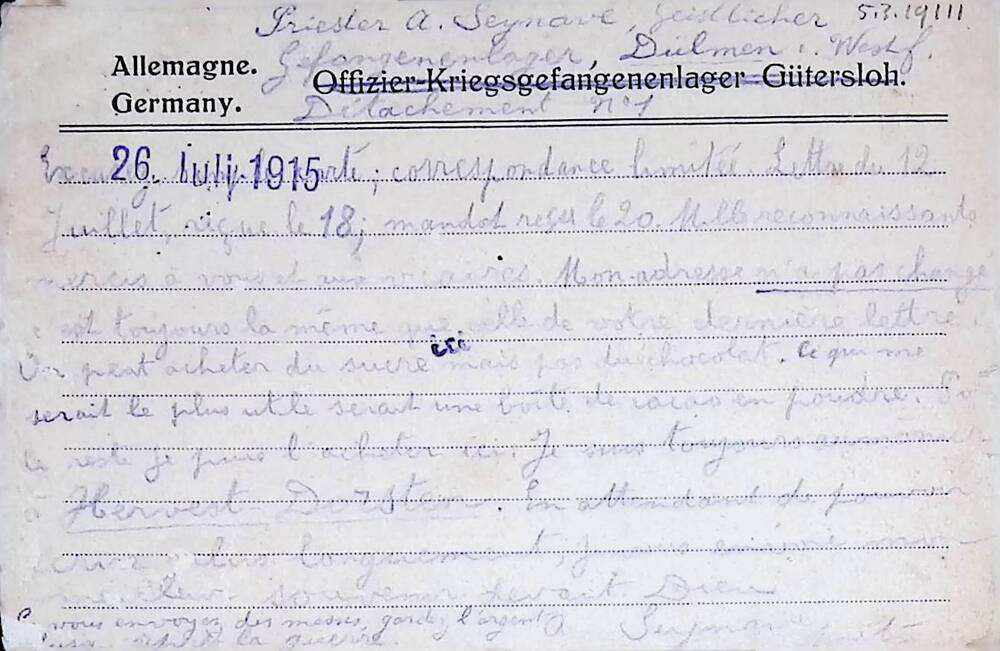 Priester A. Seynave, Geistlicher 5.3.19111
Gefangenenlager, Dülmen i. Westf.
Allemagne. Offizier-Kriegsgefangenenlager Gütersloh.
Germany. Détachement N°1
26. Juli 1915
carte; correspondance limitée. Lettre du 12
Juillet, reçue le 18; mandat reçu le 20. Mille reconnaissants
mercis à vous et aux vicaires. Mon adresse n'a pas changé
c'est toujours la même que celle de votre dernière lettre.
On peut acheter du sucre ici mais pas du chocolat. Ce qui me
serait le plus utile serait une boîte de cacao en poudre.
le reste je puis l'acheter ici. Je suis toujours aumônier
à Hervest-Dorsten. En attendant de pouvoir
écrire plus longuement, je vous envoie mon
meilleur souvenir devant Dieu
vous envoyez des messes, gardez l'argent
la guerre. Seynave